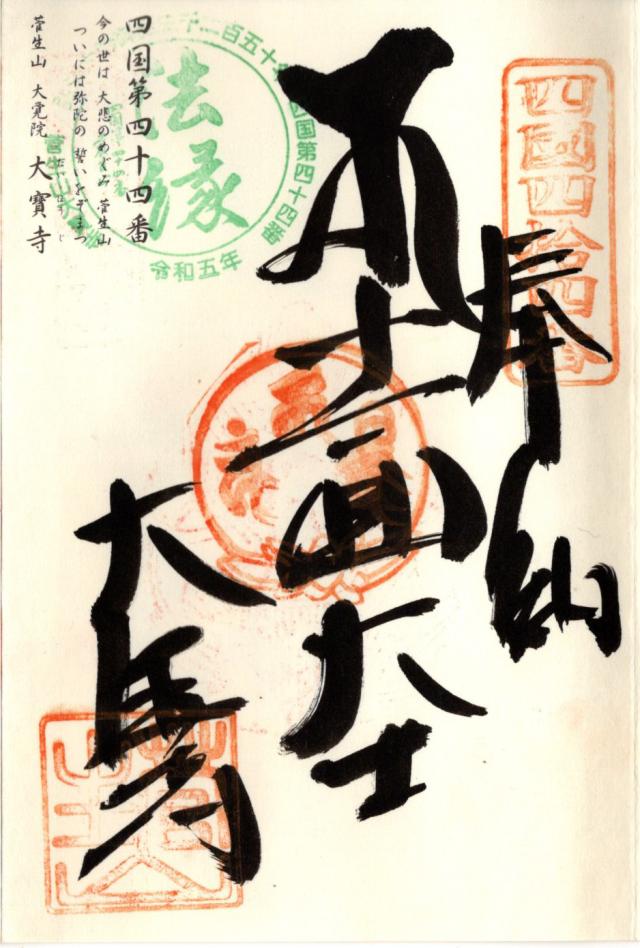 四國四拾四番
奉納
十一面大士
大寶寺
四国第四十四番
今の世は 大悲のめぐみ 菅生山
ついには弥陀の 誓いをぞまつ
菅生山 大覚院 大寶寺
法縁
四国第四十四番
令和五年